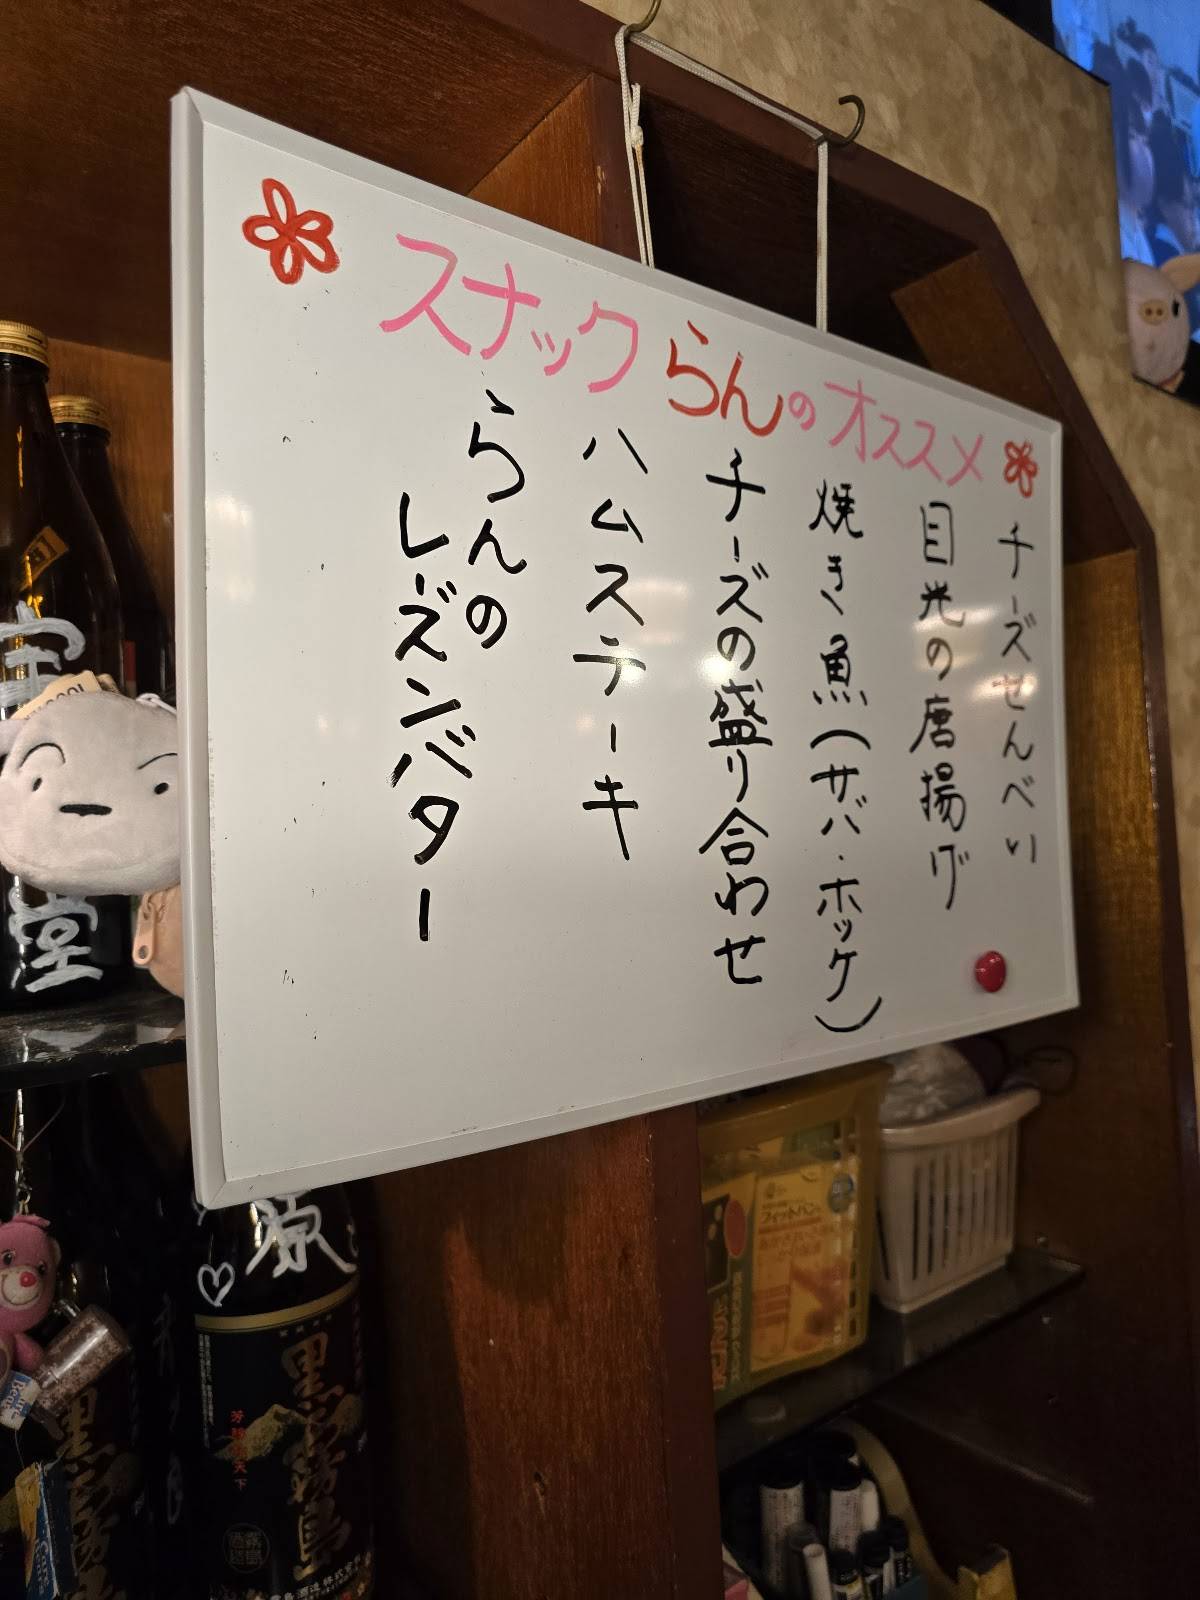 スナックらんのオススメ
チーズせんべい
目光の唐揚げ
焼き魚(サバ・ホッケ)
チーズの盛り合わせ
ハムステーキ
らんの
レーズンバター
堂
原
黒霧島
芳醇天下
黒霧
フィットバン